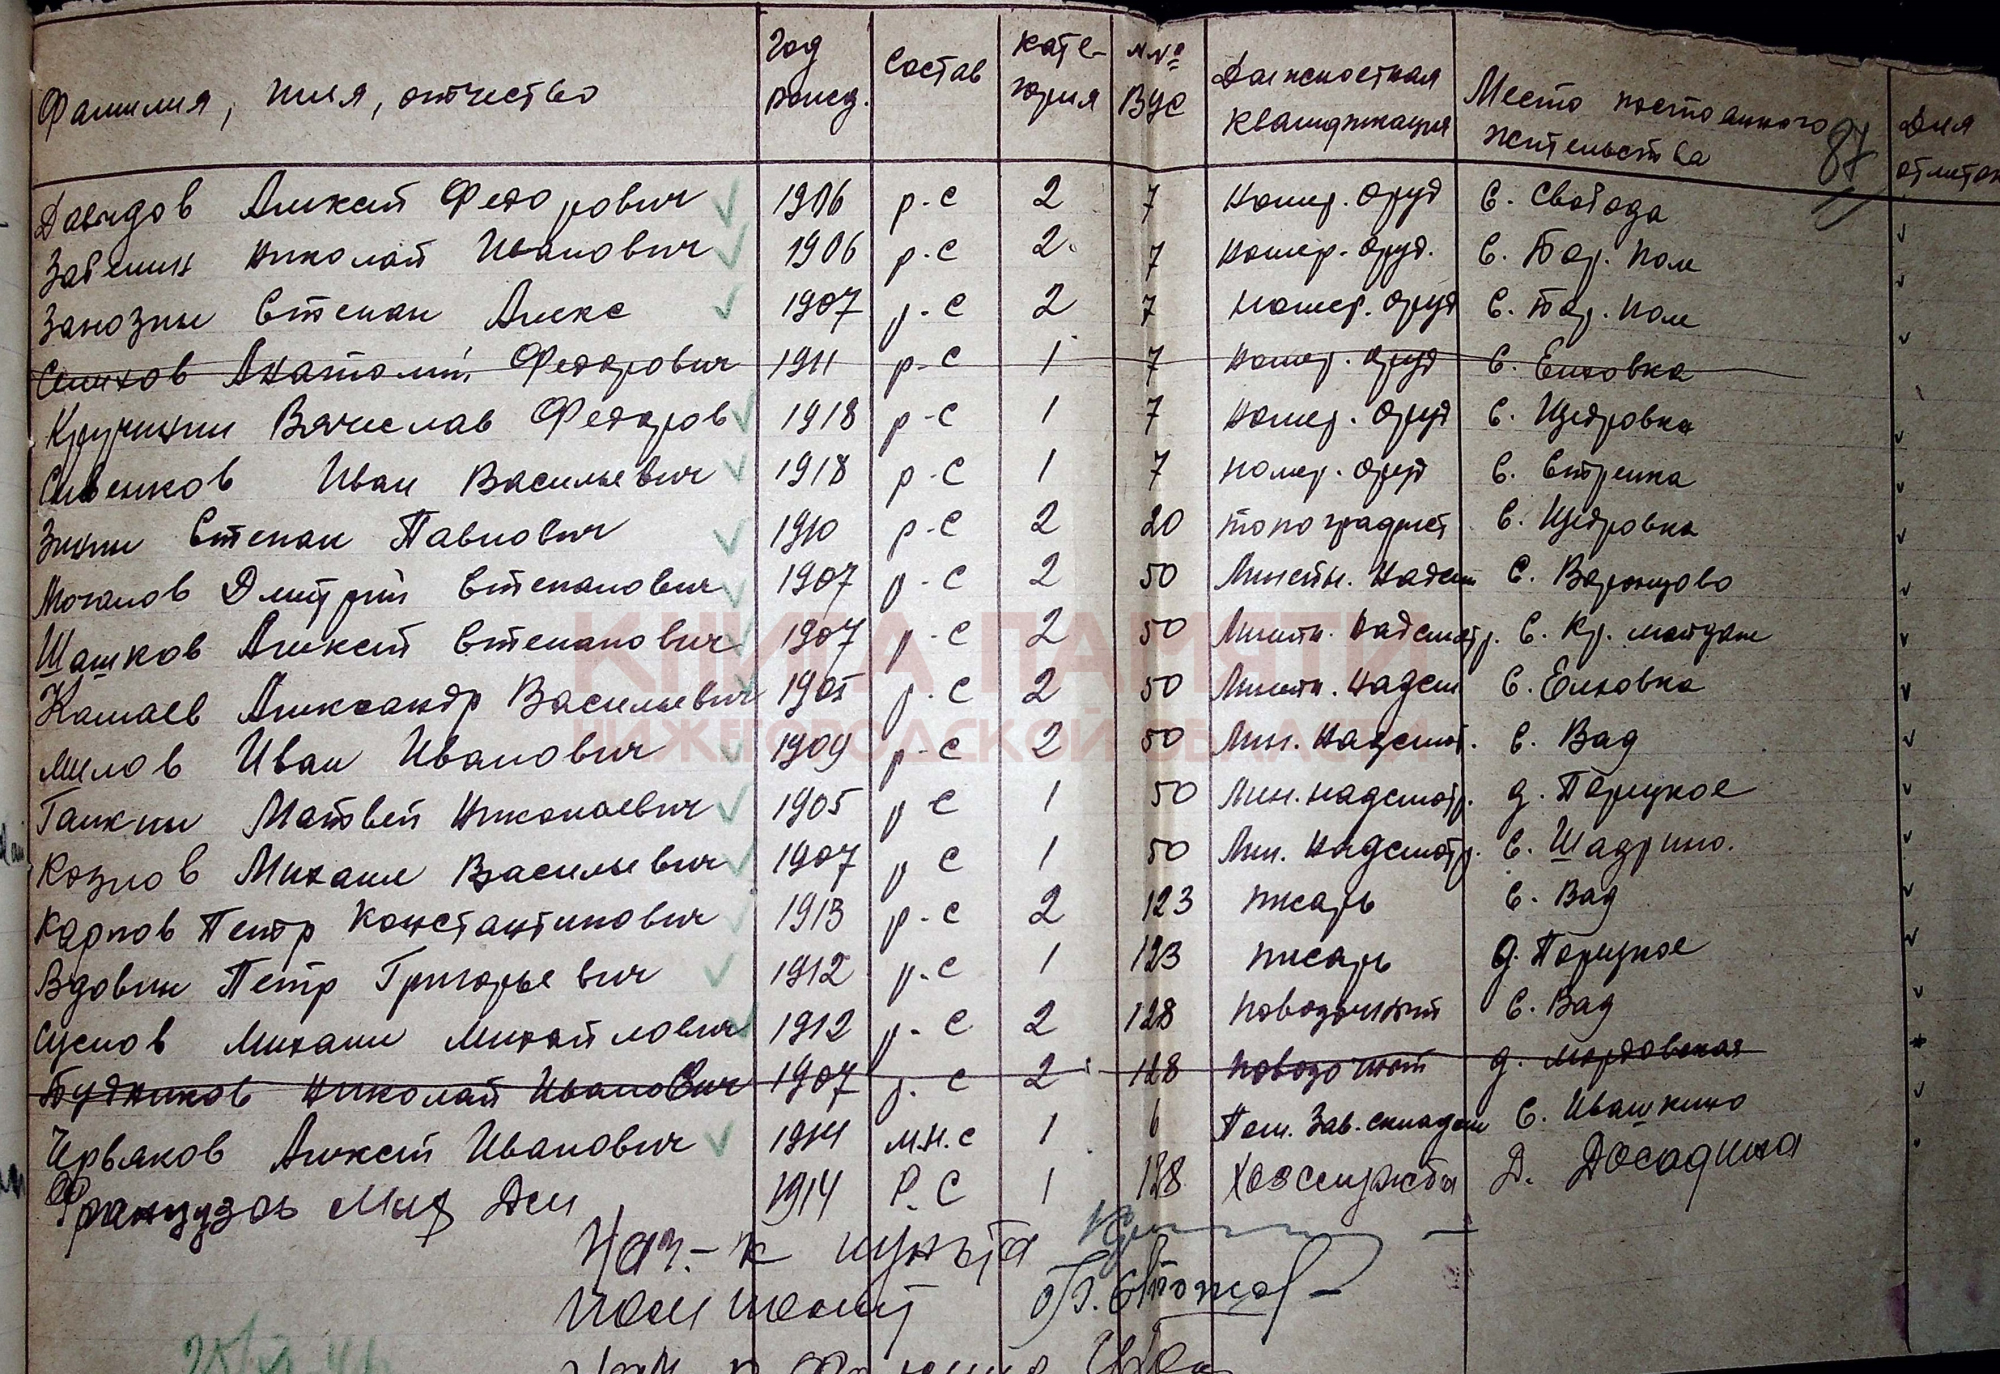 Фамилия, имя, отчество Год рожд. Состав Кате-гория №№ ВУС Должностная квалификация Место постоянного жительства Для отметок
87
Давыдов Алексей Федорович 1906 р-с 2 7 номер. оруд с. Свобода
Николай Иванович 1906 р-с 2 7 номер. оруд. с. Бор. Пол
Занозин Степан Алекс 1907 р-с 2 7 номер. оруд с. Бор. Пол
Анатолий Федорович 1911 р-с 1 7 номер. оруд с. Елховка
Кручинин Вячеслав Федоров 1918 р-с 1 7 номер. оруд с. Щедровка
Иван Васильевич 1918 р-с 1 7 номер. оруд с. Стрелка
Зинин Степан Павлович 1910 р-с 2 20 топографист с. Щедровка
Мочалов Дмитрий Степанович 1907 р-с 2 50 Линейн. надсм с. Воронцово
Шашков Алексей Степанович 1907 р-с 2 50 Линейн. надсмотр. с. Кр. майдан
Камаев Александр Васильевич 1905 р-с 2 50 Линейн. надсм с. Елховка
Милов Иван Иванович 1909 р-с 2 50 Лин. надсмот. с. Вад
Галкин Матвей Николаевич 1905 р с 1 50 Лин. надсмотр. д. Порецкое
Козлов Михаил Васильевич 1907 р с 1 50 Лин. надсмотр. с. Шадрино.
Карпов Петр Константинович 1913 р-с 2 123 писарь с. Вад
Вдовин Петр Григорьевич 1912 р-с 1 123 писарь д. Порецкое
Суслов Михаил Михайлович 1912 р-с 2 128 повозочный с. Вад
Будников Николай Иванович 1907 р-с 2 128 повозочный д. Мордовская
Червяков Алексей Иванович 1914 м.н.с 1 6 Пом. Зав. складом с. Ивашкино
Французов Мих Дм 1914 Р.С 1 128 Хозслужбы Д. Досадина
Нач-к пункта
КНИГА ПАМЯТИ
НИЖЕГОРОДСКОЙ ОБЛАСТИ